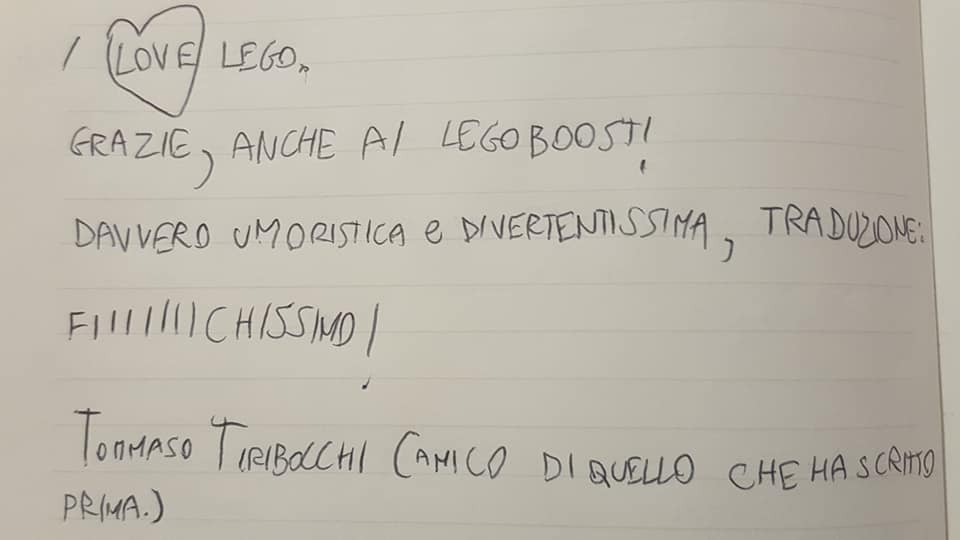 I LOVE LEGO,
GRAZIE, ANCHE AI LEGO BOOST!
DAVVERO UMORISTICA e DIVERTENTISSIMA, TRADUZIONE:
FIIIIIIICHISSIMO!
TOMMASO TIRIBOCCHI (AMICO DI QUELLO CHE HA SCRITTO
PRIMA.)